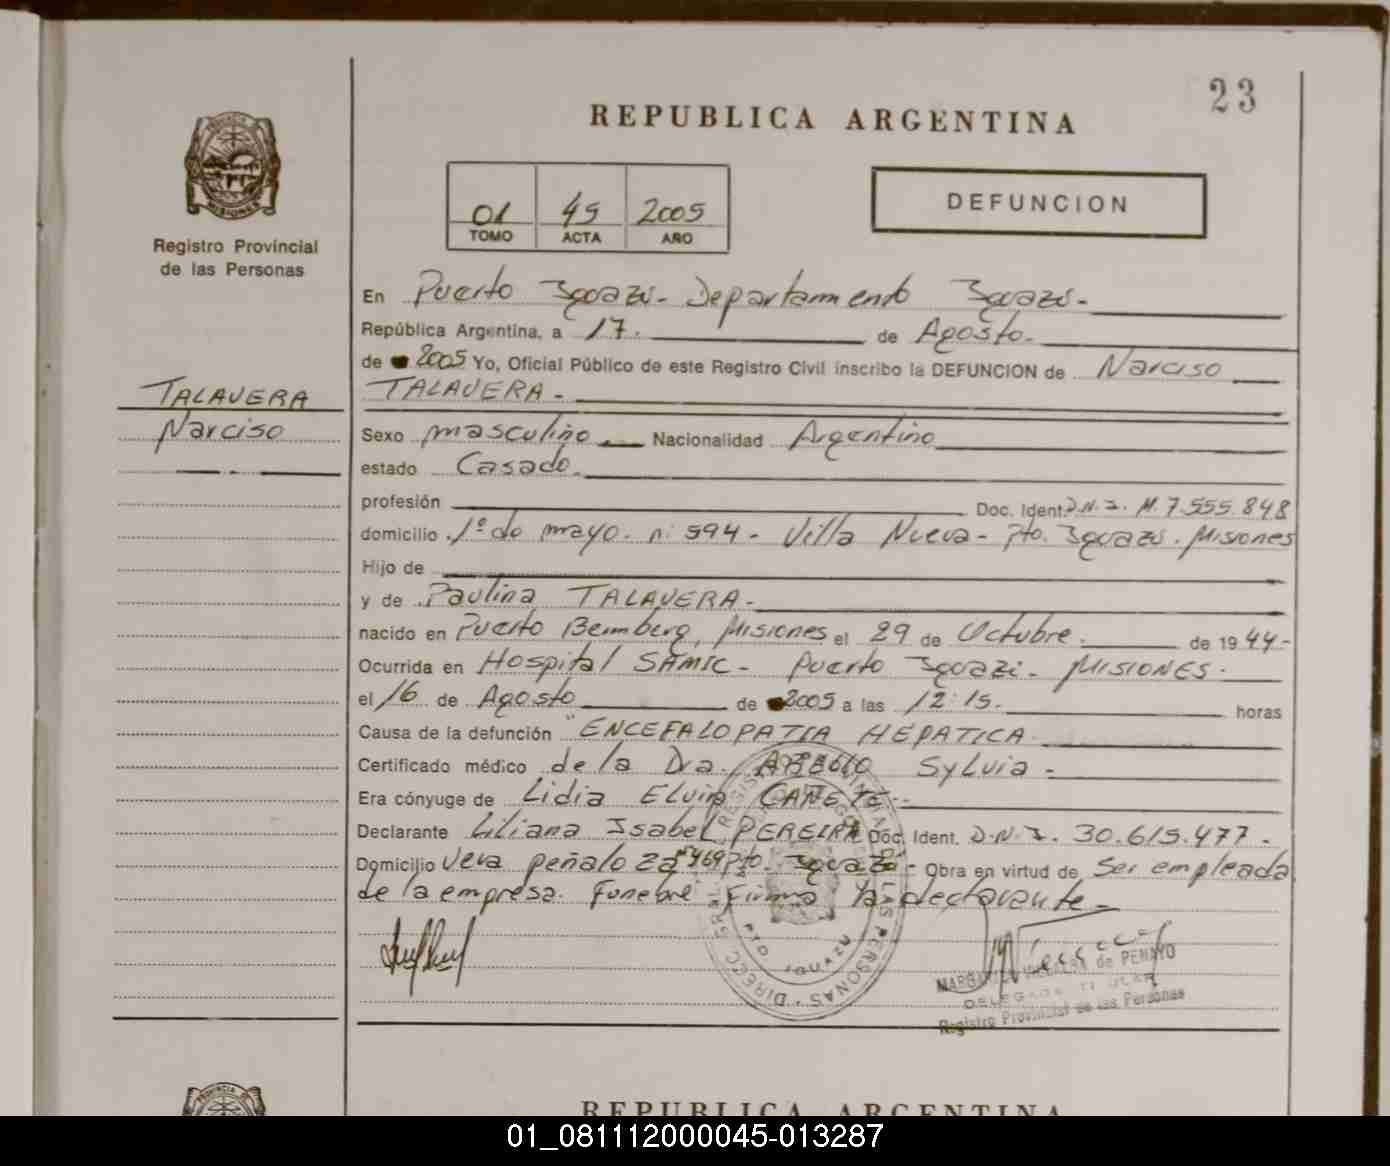 23
REPUBLICA ARGENTINA
PROVINCIA DE
MISIONES
Registro Provincial
de las Personas
01 45 2005
TOMO ACTA AÑO
DEFUNCION
En Puerto Iguazú - Departamento Iguazú -
República Argentina, a 17. de Agosto.
de 2005 Yo, Oficial Público de este Registro Civil inscribo la DEFUNCION de Narciso
TALAVERA -
TALAVERA
Narciso
Sexo masculino Nacionalidad Argentino
estado Casado.
profesión Doc. Ident. D.N.I. M. 7.555.848
domicilio 1º de mayo. n: 594 - Villa Nueva - Pto. Iguazú. Misiones
Hijo de
y de Paulina TALAVERA -
nacido en Puerto Bemberg, Misiones el 29 de Octubre. de 1944-
Ocurrida en Hospital SAMIC - Puerto Iguazú - MISIONES.
el 16 de Agosto de 2005 a las 12:15. horas
Causa de la defunción "ENCEFALOPATIA HEPATICA
Certificado médico de la Dra. Sylvia -
Era cónyuge de Lidia Elvia CAÑETE -
Declarante Liliana Isabel PEREIRA Doc. Ident. D.N.I. 30.615.477.
Domicilio Vera peñaloza nº 469 Pto. Iguazú - Obra en virtud de Ser empleada
de la empresa. Funebre Firma la declarante -
MARGARITA VILLALBA de PENAYO
DELEGADA TITULAR
Registro Provincial de las Personas
REPUBLICA ARGENTINA
01_081112000045-013287